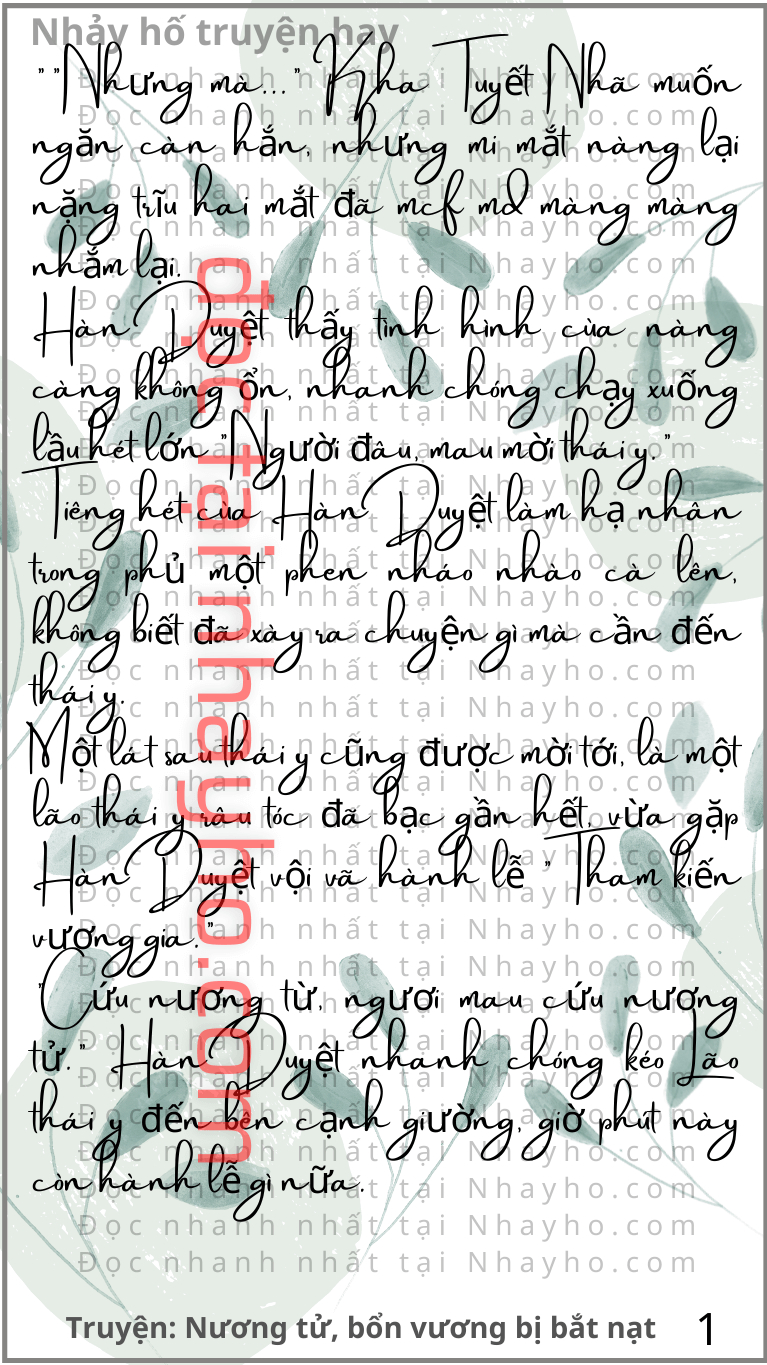 Nhảy hố truyện hay
" "Nhưng mà..." Kha Tuyết Nhã muốn
ngăn càn hắn, nhưng mi mắt nàng lại
nặng trĩu hai mắt đã mcf md màng màng
nhắm lại.
Hàn Duyệt thấy tình hình cùa nàng
càng không ổn, nhanh chóng chạy xuống
lầu hét lớn "Người đâu, mau mời thái y."
Tiêng hét cùa Hàn Duyệt làm hạ nhân
trong phủ một phen nháo nhào cà lên,
không biết đã xày ra chuyện gì mà cần đến
thái y.
Một lát sau thái y cũng được mời tới, là một
lão thái y râu tóc đã bạc gần hết, vừa gặp
Hàn Duyệt vội vã hành lễ "Tham kiến
vương gia."
"Cứu nương từ, ngươi mau cứu nương
tử." Hàn Duyệt nhanh chóng kéo Lão
thái y đến bên cạnh giường, giờ phút này
còn hành lễ gì nữa.
đọc tại nhayho.com
Đọc nhanh nhất tại Nhayho.com
Đọc nhanh nhất tại Nhayho.com
Truyện: Nương tử, bổn vương bị bắt nạt 1